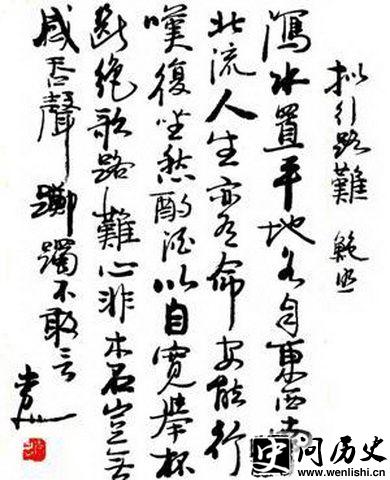 拟行路難 鮑照
瀉水置平地各自東西南
北流人生亦有命安能行
嘆復坐愁酌酒以自寬舉杯
斷絶歌路難心非木石豈無
感吞聲躑躅不敢言
问历史
www.wenlishi.cn